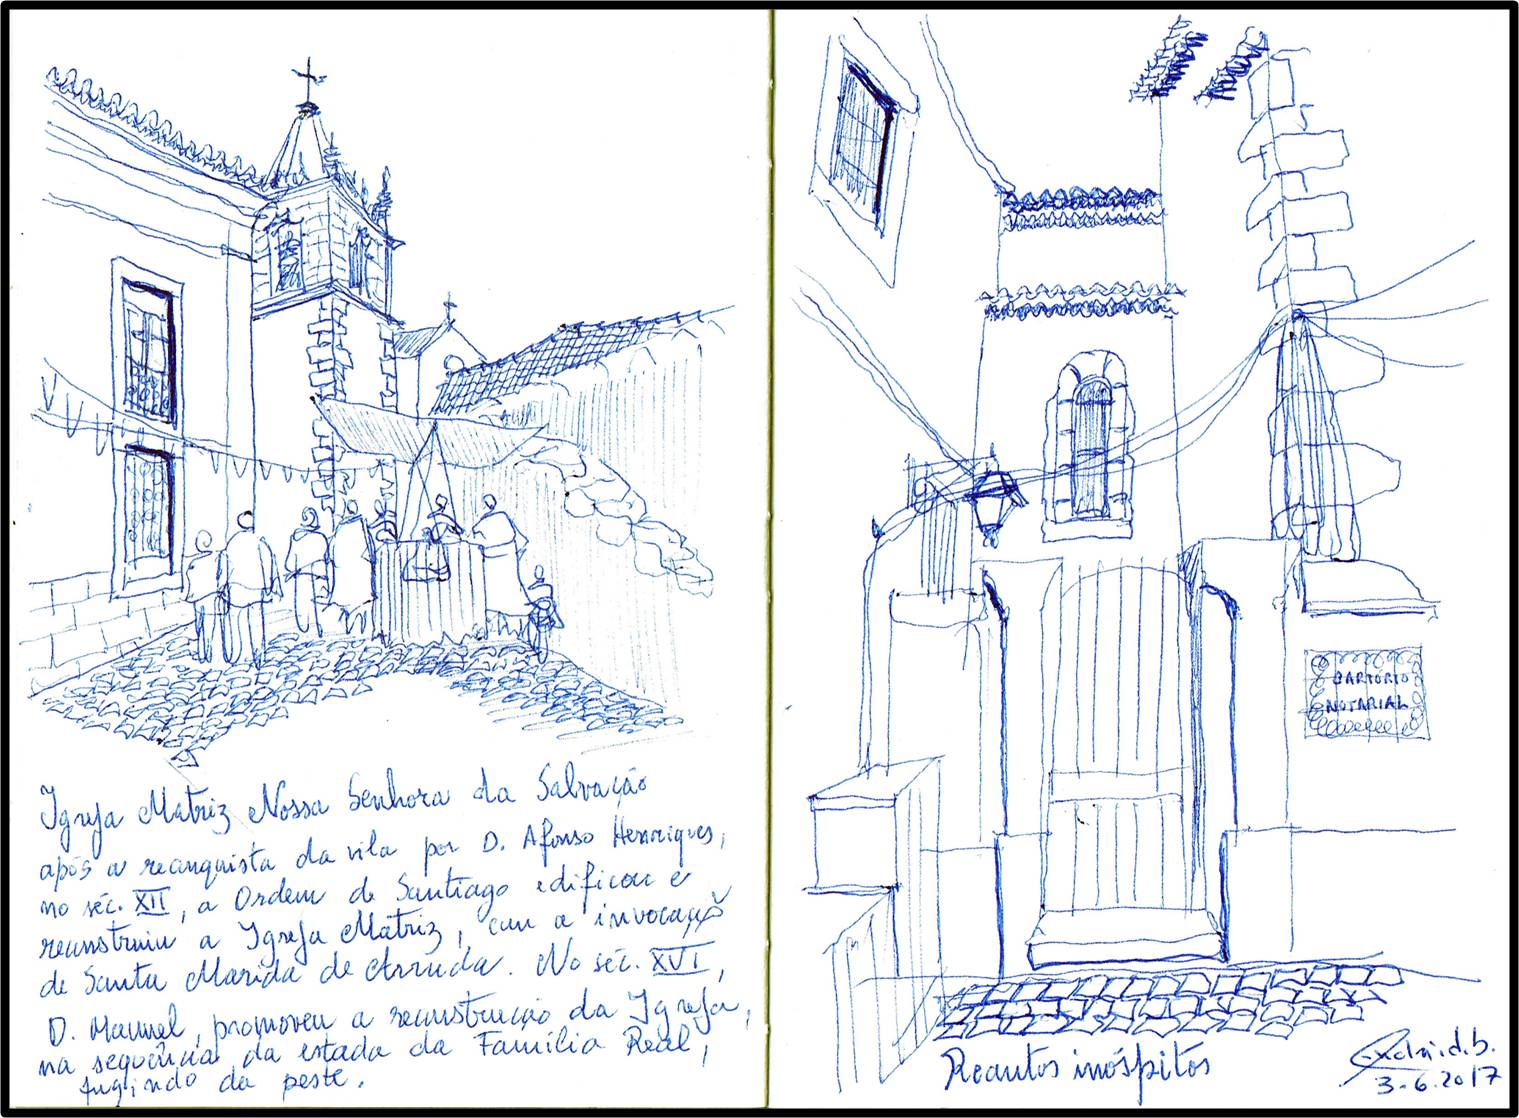 Igreja Matriz Nossa Senhora da Salvação
após a reconquista da vila por D. Afonso Henriques,
no séc. XII, a Ordem de Santiago edificou e
reconstruiu a Igreja Matriz, com a invocação
de Santa Marida de Arruda. No séc. XVI,
D. Manuel, promoveu a reconstrução da Igreja,
na sequência da estada da Família Real,
fugindo da peste.
CARTORIO
NOTARIAL
Recantos inóspitos
3-6.2017